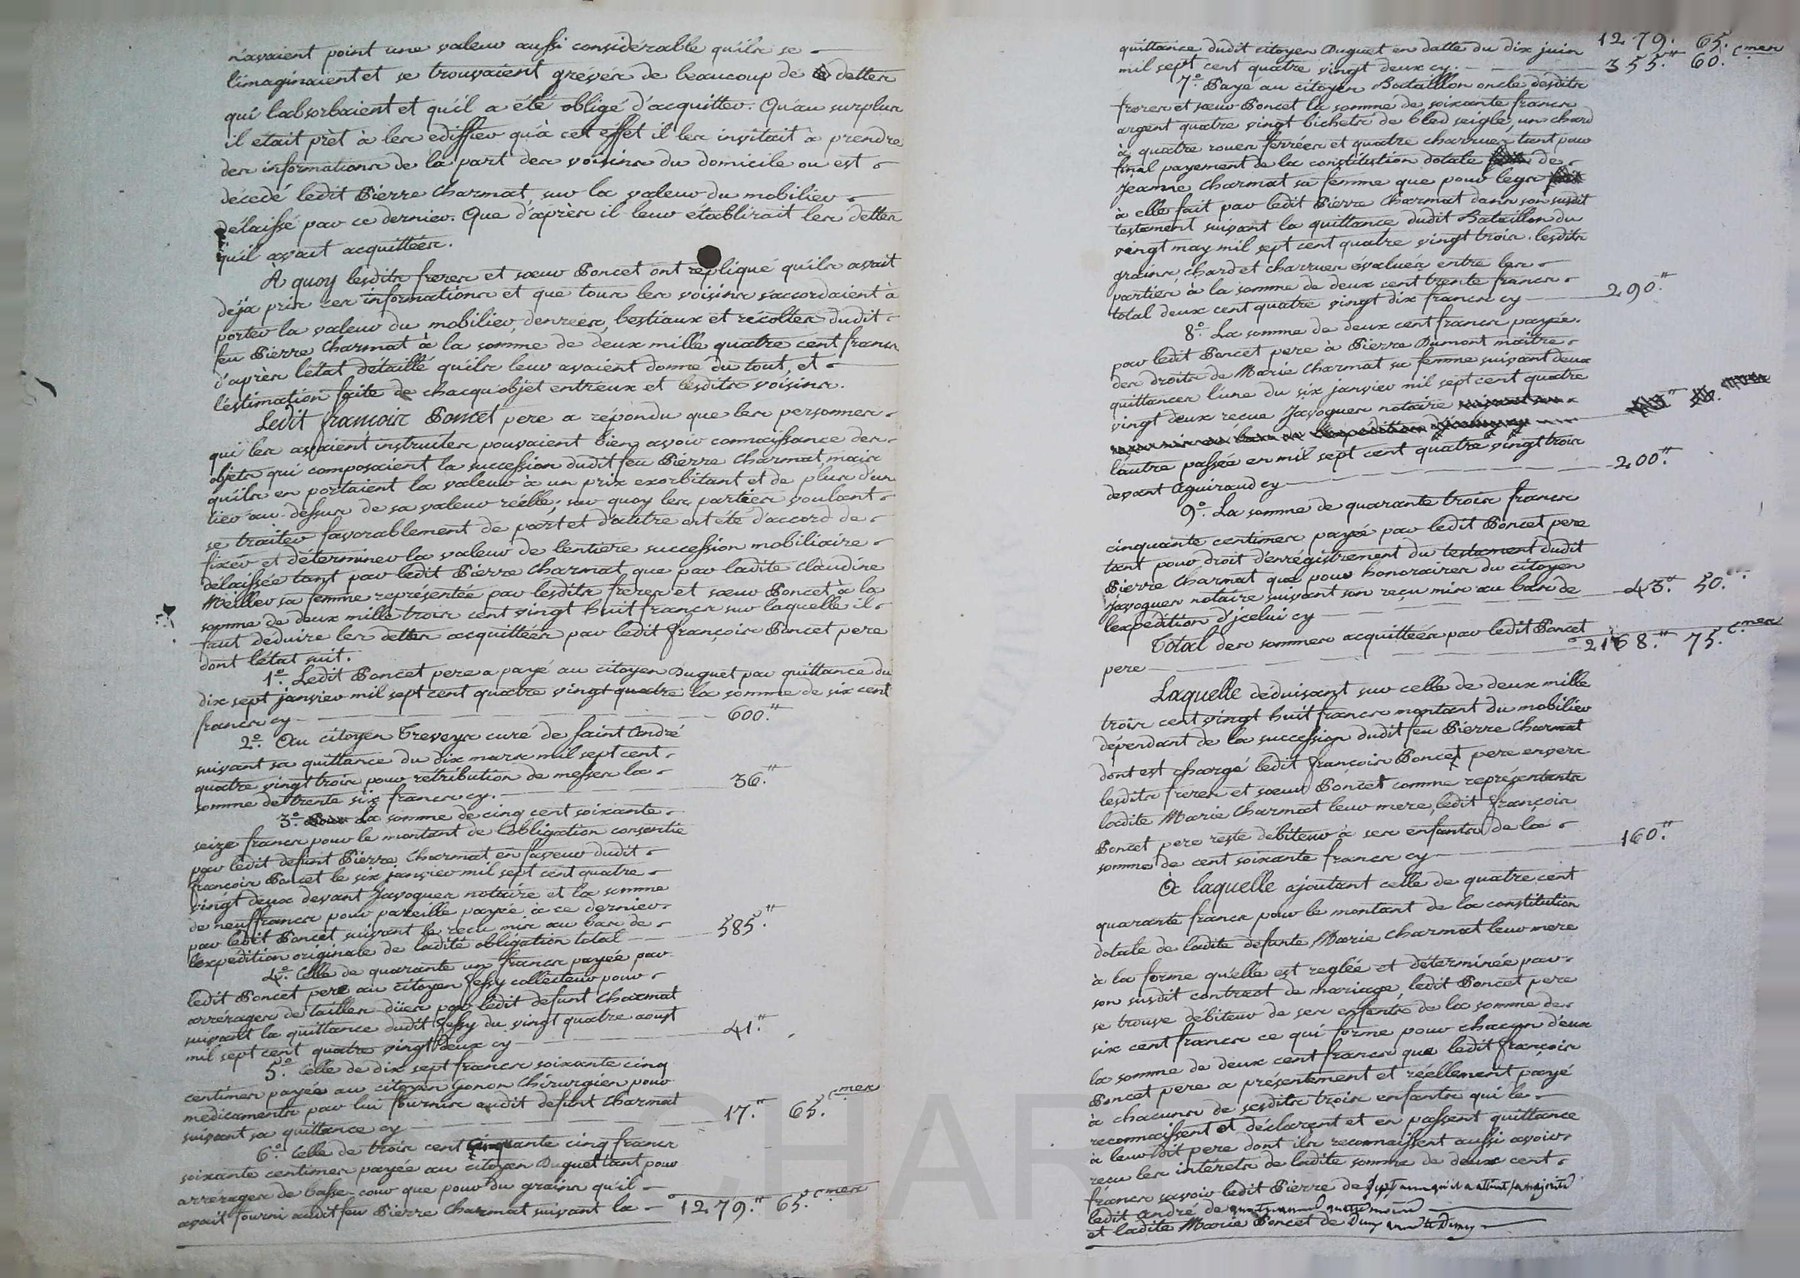 n'avaient point une valeur aussi considérable qu'ils se
l'imaginaient et se trouvaient grévés de beaucoup de dettes
qui l'absorbaient et qu'il a été obligé d'acquitter. Qu'au surplus
il etait prèt à les ediffier qu'à cet effet il les invitait à prendre
des informations de la part des voisins du domicile ou est
décédé ledit Pierre Charmat, sur la valeur du mobilier
délaissé par ce dernier. Que d'après il leur etablirait les dettes
qu'il avait acquittées.
A quoy lesdits freres et sœur Poncet ont repliqué qu'ils avait
déja pris ces informations et que tous les voisins s'accordaient à
porter la valeur du mobilier, denrées, bestiaux et récoltes dudit
feu Pierre Charmat à la somme de deux mille quatre cent francs
d'après l'état détaillé qu'ils leur avaient donné du tout, et
l'estimation faite de chacqu'objet entreux et lesdits voisins.
Ledit françois Poncet pere a repondu que les personnes
qui les avaient instruites pouvaient bien avoir connaissance des
objets qui composaient la succession dudit feu Pierre Charmat, mais
qu'ils en portaient la valeur à un prix exorbitant et de plus d'un
tiers au dessus de sa valeur réelle; sur quoy les parties voulant
se traiter favorablement de part et d'autre ont été d'accord de
fixer et déterminer la valeur de l'entiere succession mobiliaire
délaissée tant par ledit Pierre Charmat, que par ladite Claudine
Meiller sa femme représentée par lesdits freres et sœur Poncet à la
somme de deux mille trois cent vingt huit francs sur laquelle il
faut déduire les dettes acquittées par ledit françois Poncet pere
dont l'état suit.
1.° Ledit Poncet pere a payé au citoyen Duguet par quittance du
dix sept janvier mil sept cent quatre vingt quatre la somme de six cent
francs cy 600.''
2.° Au citoyen Treveys curé de saint André
suivant sa quittance du dix mars mil sept cent
quatre vingt trois pour rétribution de messes la
somme de trente six francs cy. 36.''
3.° La somme de cinq cent soixante
seize francs pour le montant de l'obligation consentie
par ledit defunt Pierre Charmat, en faveur dudit
françois Poncet le six janvier mil sept cent quatre
vingt deux devant Javoguer notaire et la somme
de neuf francs pour pareille payée à ce dernier
par ledit Poncet suivant le recu mis au bas de
l'expedition originale de ladite obligation total 585.''
4.° Celle de quarante un francs payée par
ledit Poncet pere au citoyen Fessy collecteur pour
arrérages de tailles dües par ledit defunt Charmat
suivant la quittance dudit Fessy du vingt quatre aoust
mil sept cent quatre vingt deux cy 41.''
5.° Celle de dix sept francs soixante cinq
centimes payée au citoyen Gonon Chirurgien pour
médicaments par lui fournis audit defunt Charmat
suivant sa quittance cy 17.'' 65.cmes
6.° Celle de trois cent cinquante cinq francs
soixante centimes payée au citoyen Duguet tant pour
arrérages de basse-cour que pour du grains qu'il
avait fourni audit feu Pierre Charmat suivant la 1279.'' 65.cmes
1279. 65.cmes
quittance dudit citoyen Duguet en datte du dix juin
mil sept cent quatre vingt deux cy. 355.'' 60.
7.° Payé au citoyen Bataillon oncle desdits
freres et sœur Poncet la somme de soixante francs
argent quatre vingt bichets de bled seigle, un chard
à quatre roues ferrées et quatre charrues tant pour
final payement de la constitution dotale de
Jeanne Charmat sa femme que pour legs
à elle fait par ledit Pierre Charmat dans son susdit
testament suivant la quittance dudit Bataillon du
vingt may mil sept cent quatre vingt trois. lesdits
grains, chard et charrues évalués entre les
parties à la somme de deux cent trente francs
total deux cent quatre vingt dix francs cy 290.''
8.° La somme de deux cent francs payée
par ledit Poncet pere à Pierre Dumont maitre
des droits de Marie Charmat sa femme suivant deux
quittances l'une du six janvier mil sept cent quatre
vingt deux recue Javoguer notaire
l'autre passée en mil sept cent quatre vingt trois
devant Aguiraud cy 200.''
9.° La somme de quarante trois francs
cinquante centimes payée par ledit Poncet pere
tant pour droit d'enrégistrement du testament dudit
Pierre Charmat que pour honoraires du citoyen
Javoguer notaire suivant son reçu mis au bas de
l'expedition d'jcelui cy 43.'' 50.
Total des sommes acquittées par ledit Poncet
pere 2168.'' 75.cmes
Laquelle déduisant sur celle de deux mille
trois cent vingt huit francs montant du mobilier
dépendant de la succession dudit feu Pierre Charmat
dont est chargé ledit françois Poncet pere envers
lesdits freres et sœur Poncet comme représentants
ladite Marie Charmat leur mere, ledit françois
Poncet pere reste débiteur à ses enfants de la
somme de cent soixante francs cy 160.''
À laquelle ajoutant celle de quatre cent
quarante francs pour le montant de la constitution
dotale de ladite défunte Marie Charmat leur mere
à la forme qu'elle est reglée et déterminée par
son susdit contract de mariage, ledit Poncet pere
se trouve débiteur de ses enfants de la somme de
six cent francs ce qui forme pour chacun d'eux
la somme de deux cent francs que ledit françois
Poncet pere a présentement et réellement payé
à chacuns de sesdits trois enfants qui le
reconnaissent et déclarent et en passent quittance
à leur dit pere dont ils reconnaissent aussi avoir
reçu les intérêts de ladite somme de deux cent
francs savoir ledit Pierre de sept ans qu'il a atteint sa majorité
ledit André de quatre ans quatre mois
et ladite Marie Poncet de
CHAR